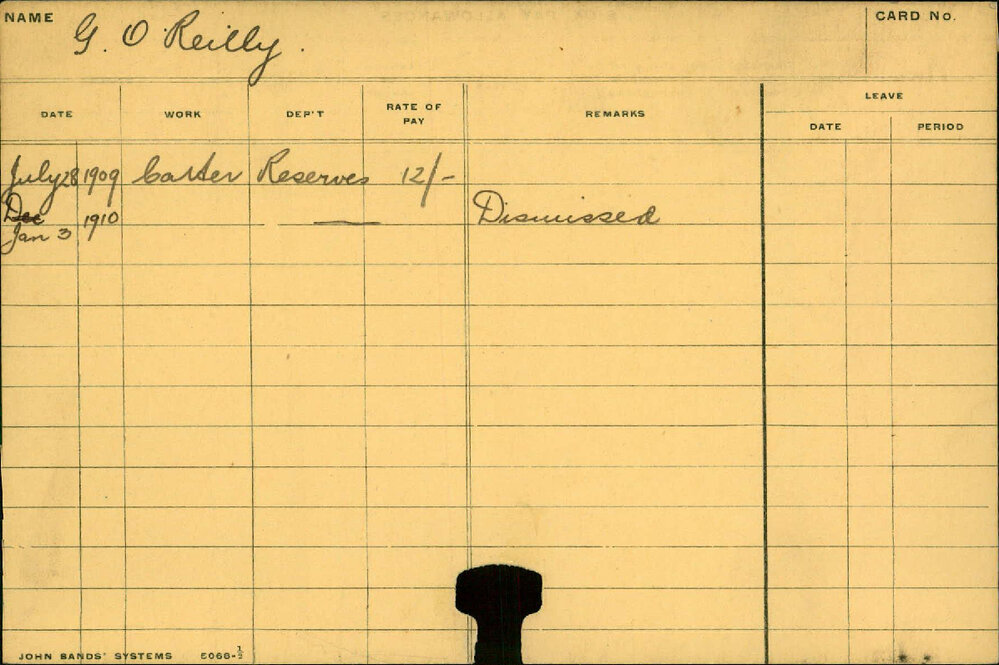 NAME G. O'Reilly. CARD No.
LEAVE
DATE WORK DEP'T RATE OF PAY REMARKS DATE PERIOD
July 28 1909 Carter Reserves 12/-
Dec 1910 — Dismissed
Jan 3
JOHN SANDS' SYSTEMS 6066-½